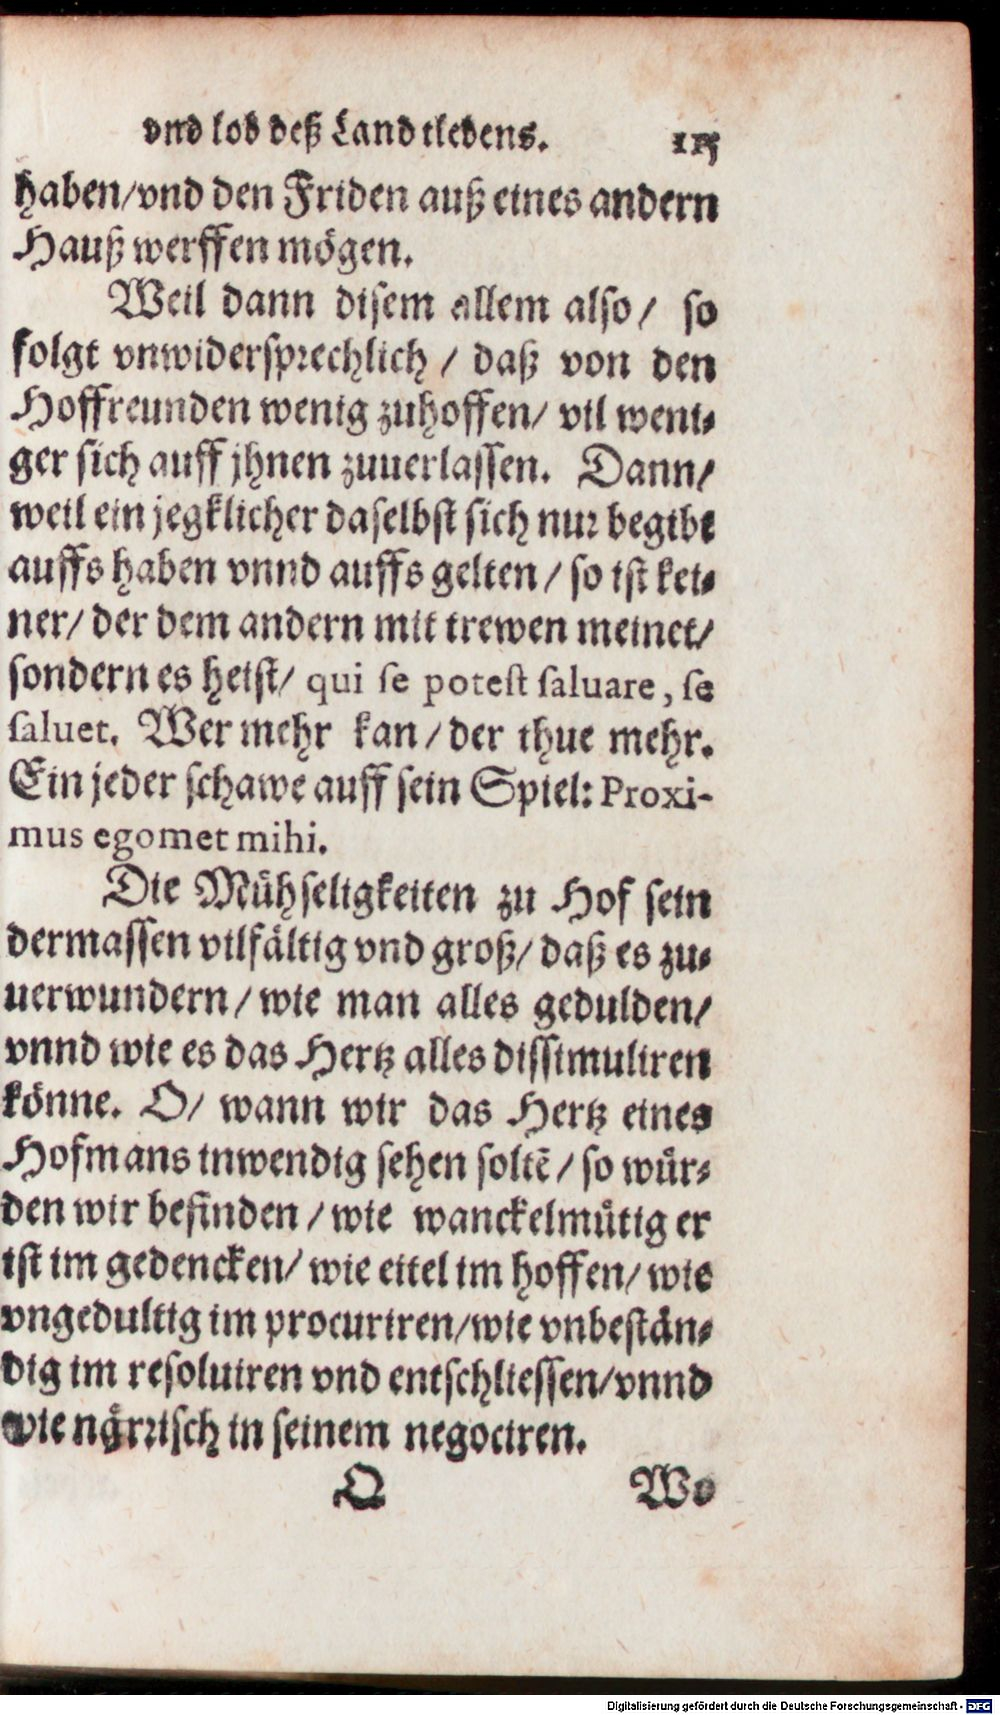 vnd lob deß Landtlebens. 115
haben/vnd den Friden auß eines andern
Hauß werffen mögen.
Weil dann disem allem also/ so
folgt vnwidersprechlich / daß von den
Hoffreunden wenig zuhoffen/ vil weni⸗
ger sich auff jhnen zuuerlassen. Dann/
weil ein jegklicher daselbst sich nur begibt
auffs haben vnnd auffs gelten / so ist kei⸗
ner/ der dem andern mit trewen meinet/
sondern es heist/ qui se potest saluare, se
saluet. Wer mehr kan / der thue mehr.
Ein jeder schawe auff sein Spiel: Proxi-
mus egomet mihi.
Die Mühseligkeiten zu Hof sein
dermassen vilfältig vnd groß/ daß es zu⸗
uerwundern / wie man alles gedulden/
vnnd wie es das Hertz alles dissimuliren
könne. O/ wann wir das Hertz eines
Hofmans inwendig sehen soltē / so wür⸗
den wir befinden / wie wanckelmütig er
ist im gedencken/ wie eitel im hoffen/ wie
vngedultig im procuriren/wie vnbestän⸗
dig im resoluiren vnd entschliessen/vnnd
wie närrisch in seinem negociren.
Q Wo
Digitalisierung gefördert durch die Deutsche Forschungsgemeinschaft - DFG